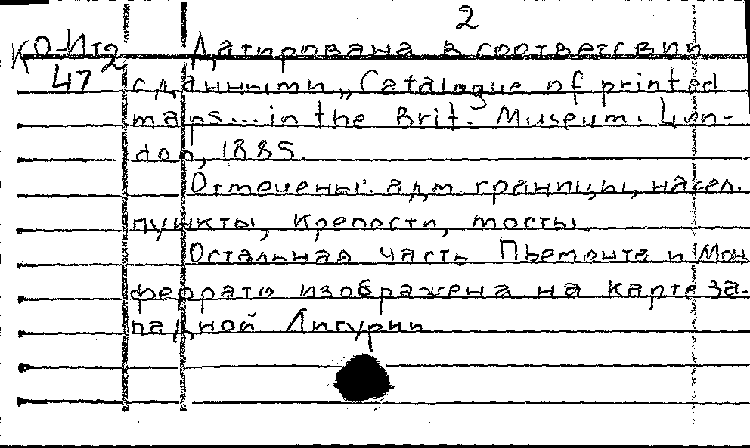 2
КО-Ит2 Датирована в соответсвии
47 с данными „Catalogue of printed
maps... in the Brit. Museum. Lon-
don, 1885.
Отмечены: адм. границы, насел.
пункты, крепости, мосты.
Остальная часть Пьемонта и Мон
феррато изображена на карте За-
падной Лигурии